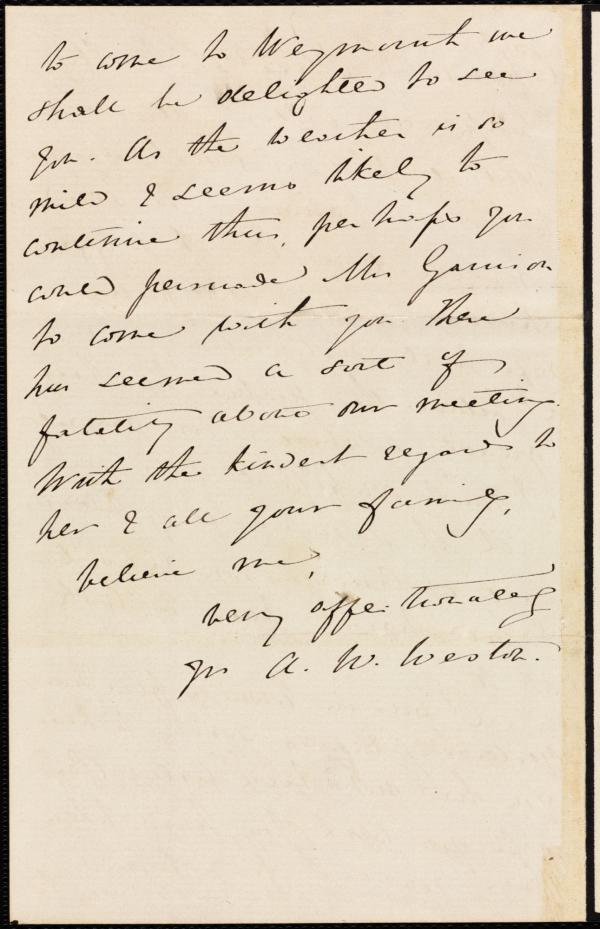 to come to Weymouth we
shall be delighted to see
you. As the weather is so
mild & seems likely to
continue thus, perhaps you
could persuade Mrs Garrison
to come with you. There
has seemed a sort of
fatality about our meeting.
With the kindest regards to
her & all your family,
believe me,
very affectionately
yrs A. W. Weston.